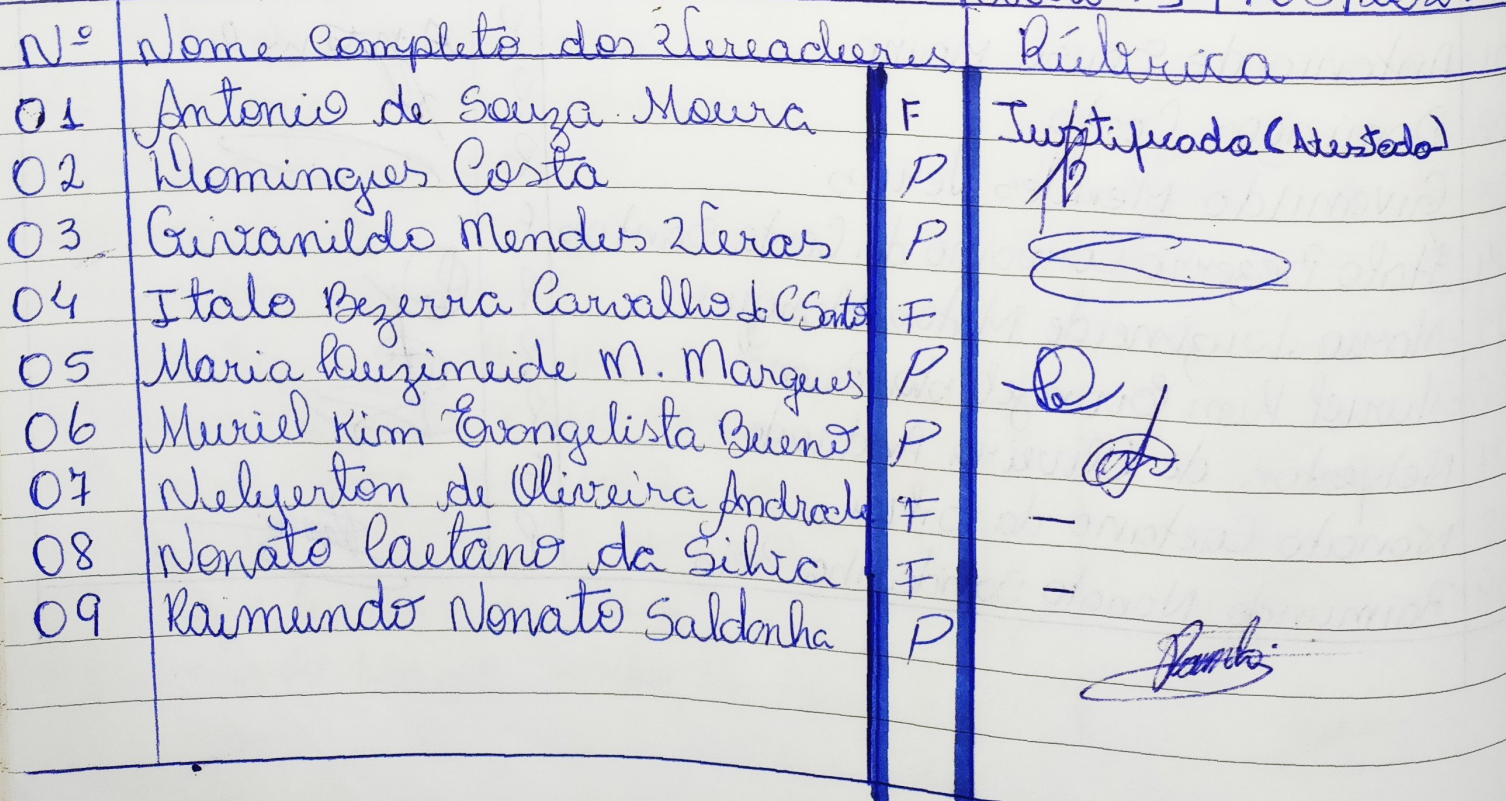 Nº Nome Completo dos Vereadores Rúbrica
01 Antonio de Souza Moura F Justificada (Atestado)
02 Domingues Costa P
03 Givanildo Mendes Veras P
04 Italo Bezerra Carvalho do C. Santos F
05 Maria Luzimeide M. Marques P
06 Muriel Kim Evangelista Bueno P
07 Nelyerton de Oliveira Andrade F —
08 Nonato Caetano da Silva F —
09 Raimundo Nonato Saldanha P